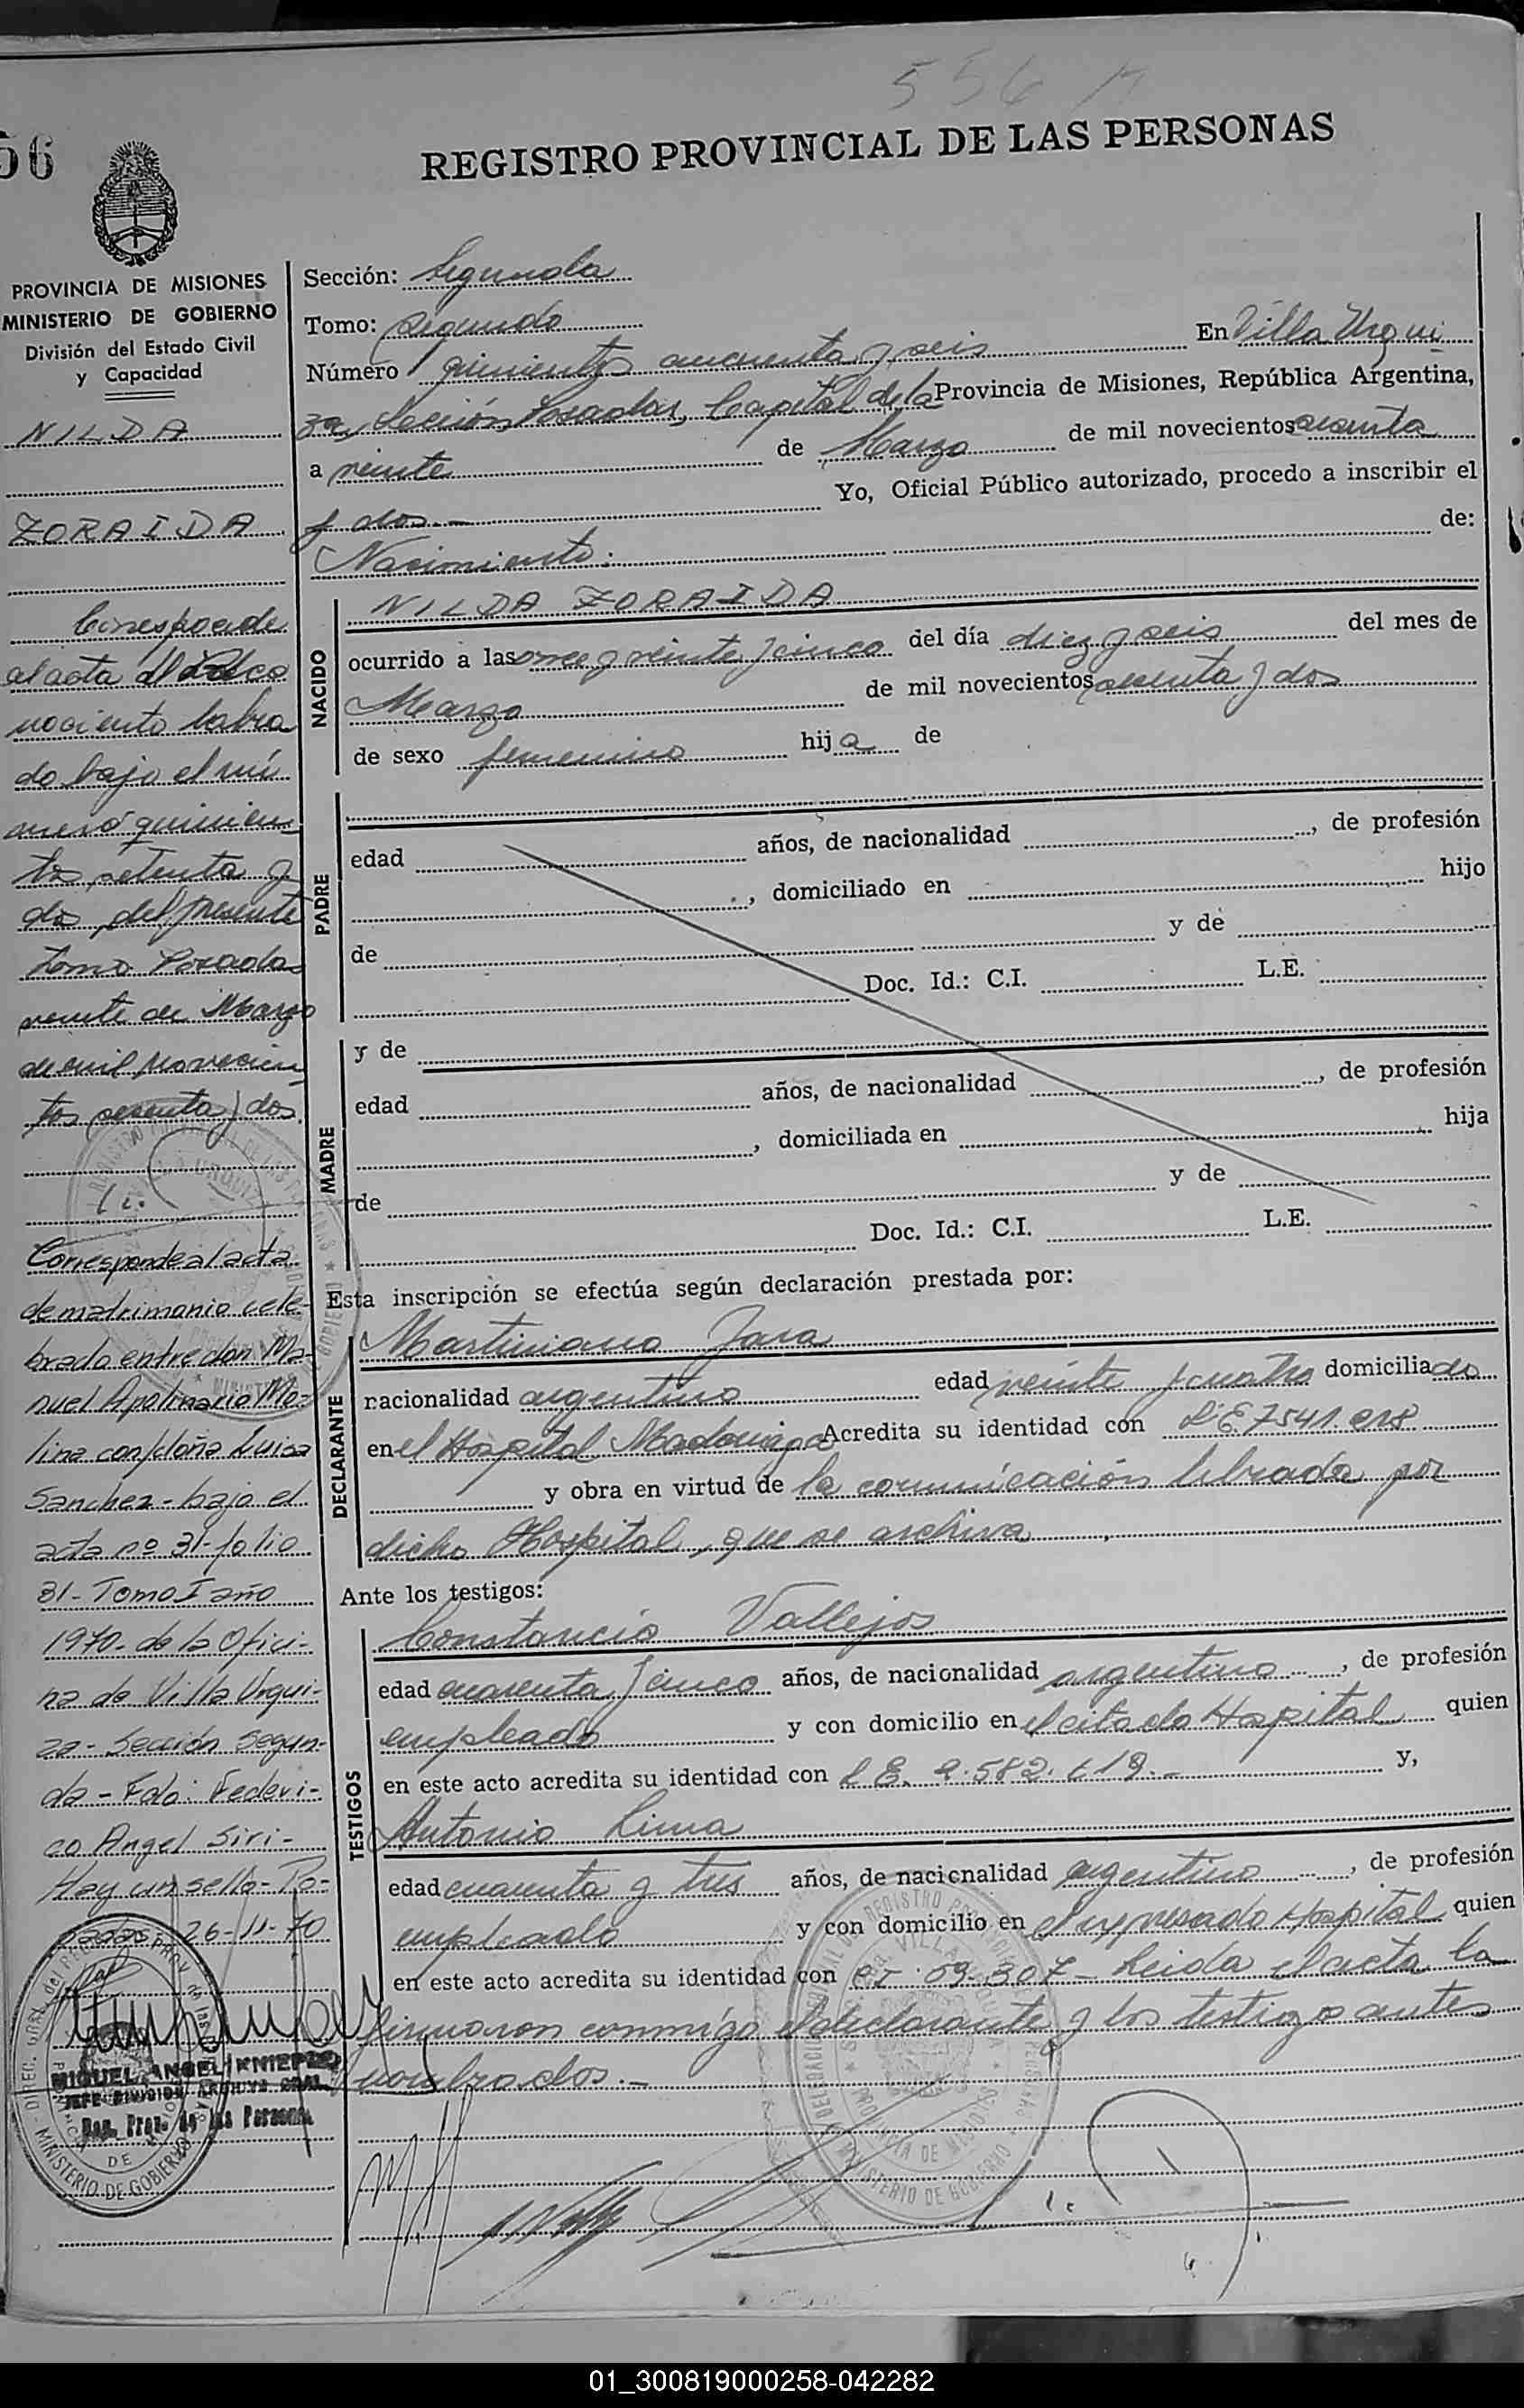 556
56
REGISTRO PROVINCIAL DE LAS PERSONAS
PROVINCIA DE MISIONES
MINISTERIO DE GOBIERNO
División del Estado Civil
y Capacidad
NILDA
ZORAIDA
Corresponde
al acta de Reco
nociento labra
do bajo el nú
mero quinien
tos setenta y
dos del presente
tomo Posadas
veinte de Marzo
de mil novecien
tos sesenta y dos.
Corresponde al acta
de matrimonio cele-
brado entre don Ma-
nuel Apolinario Mo-
lina con doña Luisa
Sanchez - bajo el
acta no 31 - folio
31 - Tomo I año
1970 - de la Ofici-
na de Villa Urqui-
za - Sección Segun-
da - Fdo: Federi-
co Angel Siri-
Hay un sello - Po-
sadas 26-11-70
MIGUEL ANGEL
JEFE DIVISION ARCHIVO GRAL
Reg. Prov. de las Personas
Sección: Segunda
Tomo: Segundo
Número quinientos cincuenta y seis En Villa Urqui
za, Sección Posadas, Capital de la Provincia de Misiones, República Argentina,
a veinte de Marzo de mil novecientos sesenta
y dos.- Yo, Oficial Público autorizado, procedo a inscribir el
Nacimiento: de:
NACIDO
NILDA ZORAIDA
ocurrido a las once y veinte y cinco del día diez y seis del mes de
Marzo de mil novecientos sesenta y dos
de sexo femenino hija de
PADRE
edad años, de nacionalidad , de profesión
, domiciliado en hijo
de y de
Doc. Id.: C.I. L.E.
MADRE
y de
edad años, de nacionalidad , de profesión
, domiciliada en hija
de y de
Doc. Id.: C.I. L.E.
Esta inscripción se efectúa según declaración prestada por:
DECLARANTE
Martiniano Jara
nacionalidad argentino edad veinte y cuatro domiciliado
en el Hospital Madariaga Acredita su identidad con L.E. 7541.018
y obra en virtud de la comunicación librada por
dicho Hospital, que se archiva
Ante los testigos:
TESTIGOS
Constancio Vallejos
edad cuarenta y cinco años, de nacionalidad argentino , de profesión
empleado y con domicilio en el citado Hospital quien
en este acto acredita su identidad con L.E. y,
Antonio Lima
edad cuarenta y tres años, de nacionalidad argentino , de profesión
empleado y con domicilio en el expresado Hospital quien
en este acto acredita su identidad con C.I. 09.307 - Leida el acta la
firmaron conmigo el declarante y los testigo antes
nombrados.-
01_300819000258-042282